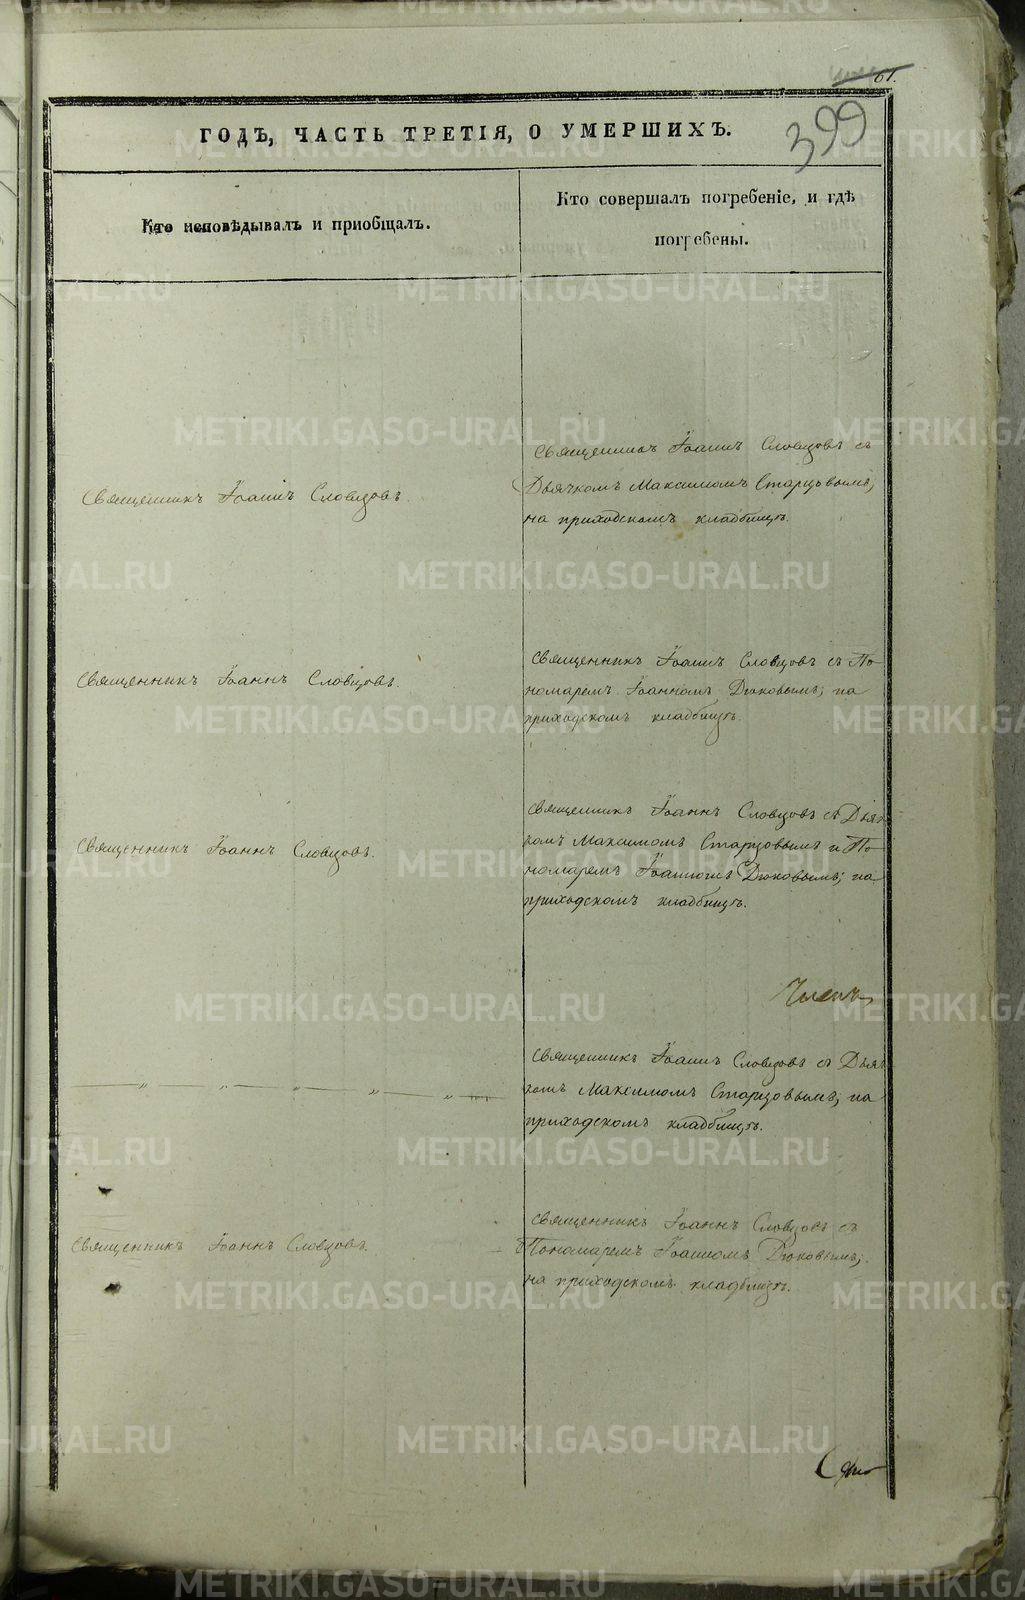 61.
399
ГОДЪ, ЧАСТЬ ТРЕТІЯ, О УМЕРШИХЪ.
Кто исповѣдывалъ и пріобщалъ.
Кто совершалъ погребеніе, и гдѣ
погребены.
Священникъ Іоаннъ Словцовъ.
Священникъ Іоаннъ Словцовъ съ
Дьячкомъ Максимомъ Старцовымъ,
на приходскомъ кладбищѣ.
Священникъ Іоаннъ Словцовъ.
Священникъ Іоаннъ Словцовъ съ По-
номаремъ Іоанномъ Дюковымъ; на
приходскомъ кладбищѣ.
Священникъ Іоаннъ Словцовъ.
Священникъ Іоаннъ Словцовъ съ Дьяч-
комъ Максимомъ Старцовымъ и По-
номаремъ Іоанномъ Дюковымъ; на
приходскомъ кладбищѣ.
Членъ
Священникъ Іоаннъ Словцовъ съ Дьяч-
— „ — „ — „ — „ — „ —
комъ Максимомъ Старцовымъ; на
приходскомъ кладбищѣ.
Священникъ Іоаннъ Словцовъ.
Священникъ Іоаннъ Словцовъ съ
Пономаремъ Іоанномъ Дюковымъ;
на приходскомъ кладбищѣ.
METRIKI.GASO-URAL.RU